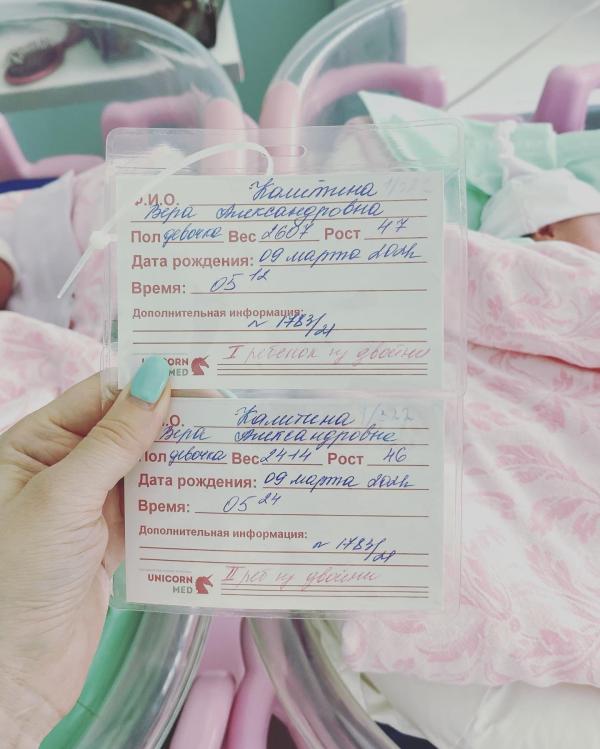 Ф.И.О. Калитина
Вера Александровна
Пол девочка Вес 2607 Рост 47
Дата рождения: 09 марта
Время: 05 12
Дополнительная информация:
№ 1783/21
UNICORN MED I ребенок из двойни
Ф.И.О. Калитина
Вера Александровна
Пол девочка Вес 2414 Рост 46
Дата рождения: 09 марта
Время: 05 24
Дополнительная информация:
№ 1783/21
UNICORN MED II реб из двойни